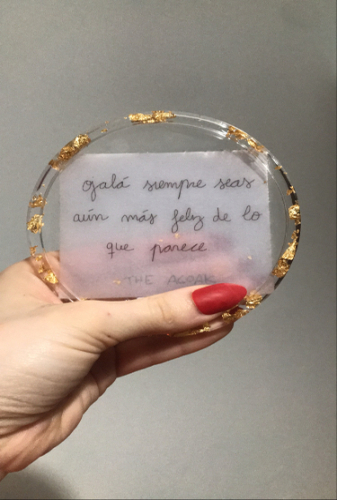 ojalá siempre seas
aún más feliz de lo
que parece
THE